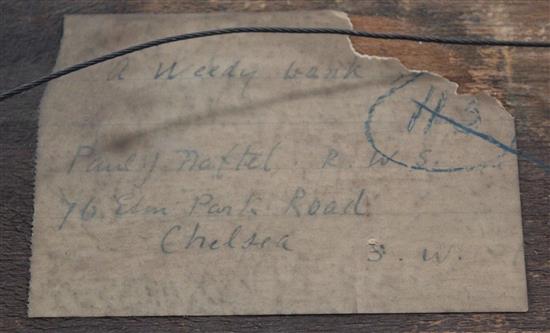 A Weedy bank
113
Paul J Naftel R. W. S.
76 Elm Park Road
Chelsea S. W.